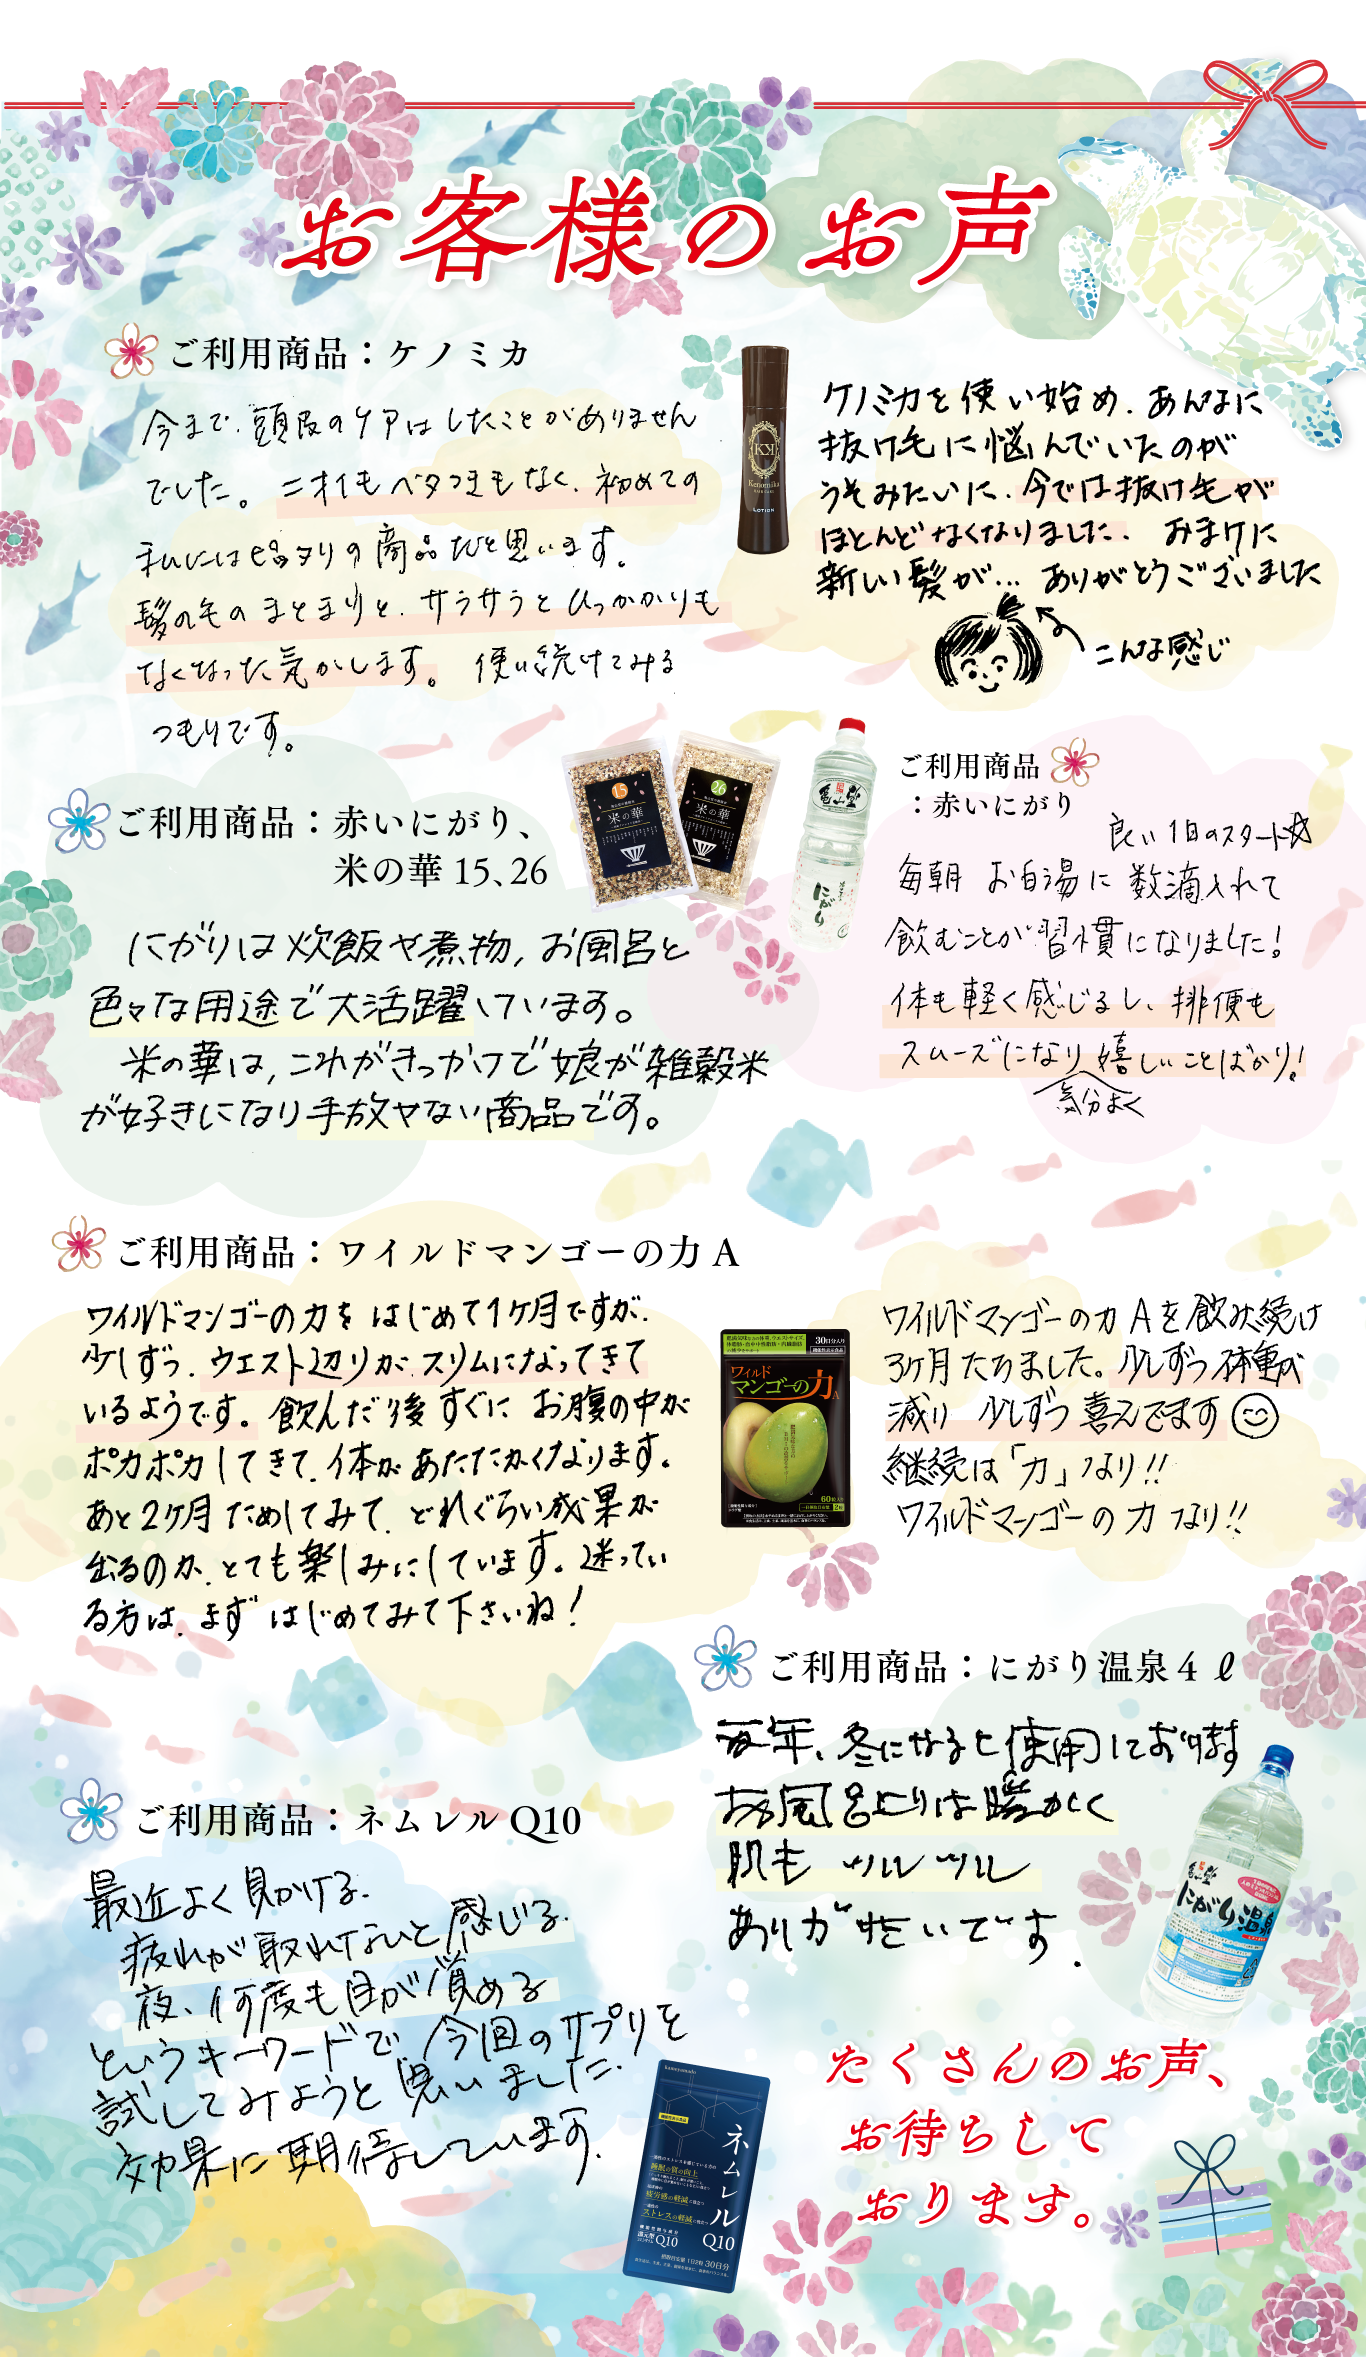 お客様のお声
ご利用商品：ケノミカ
今まで、頭皮のケアはしたことがありません
でした。ニオイもベタつきもなく、初めての
私にはピッタリの商品だと思います。
髪の毛のまとまりと、サラサラとひっかかりも
なくなった気がします。使い続けてみる
つもりです。
KK
Kenomika
LOTION
ケノミカを使い始め、あんなに
抜け毛に悩んでいたのが
うそみたいに、今では抜け毛が
ほとんどなくなりました、おまけに
新しい髪が… ありがとうございました
こんな感じ
ご利用商品：赤いにがり、
米の華 15、26
15
米の華
26
米の華
にがりは炊飯や煮物、お風呂と
色々な用途で大活躍しています。
米の華は、これがきっかけで娘が雑穀米
が好きになり手放せない商品です。
亀山堂
にがり
ご利用商品
：赤いにがり
良い1日のスタート☆
毎朝 お白湯に数滴入れて
飲むことが習慣になりました！
体も軽く感じるし、排便も
スムーズになり嬉しいことばかり！
気分よく
ご利用商品：ワイルドマンゴーの力 A
ワイルドマンゴーの力を はじめて1ヶ月ですが、
少しずつ、ウエスト辺りがスリムになってきて
いるようです。飲んだ後すぐに お腹の中が
ポカポカしてきて、体があたたかくなります。
あと2ヶ月ためしてみて、どれぐらい成果が
出るのか、とても楽しみにしています。迷ってい
る方は、まず はじめてみて下さいね！
30日分入り
ワイルド
マンゴーの力A
60粒入り
ワイルドマンゴーの力 Aを飲み続け
3ヶ月たちました。少しずつ体重が
減り 少しずつ喜んでます
継続は「力」なり!!
ワイルドマンゴーの力なり!!
ご利用商品：にがり温泉４ℓ
毎年、冬になると使用しております
お風呂上りは暖かく
肌も ツルツル
ありがたいです.
亀山堂
にがり温泉
ご利用商品：ネムレル Q10
最近よく見かける、
疲れが取れないと感じる、
夜、何度も目が覚める
というキーワードで、今回のサプリを
試してみようと思いました。
効果に期待しています。
ネムレル
Q10
睡眠の質の向上
疲労感の軽減に役立つ
ストレスの軽減に役立つ
還元型
Q10
30日分
たくさんのお声、
お待ちして
おります。